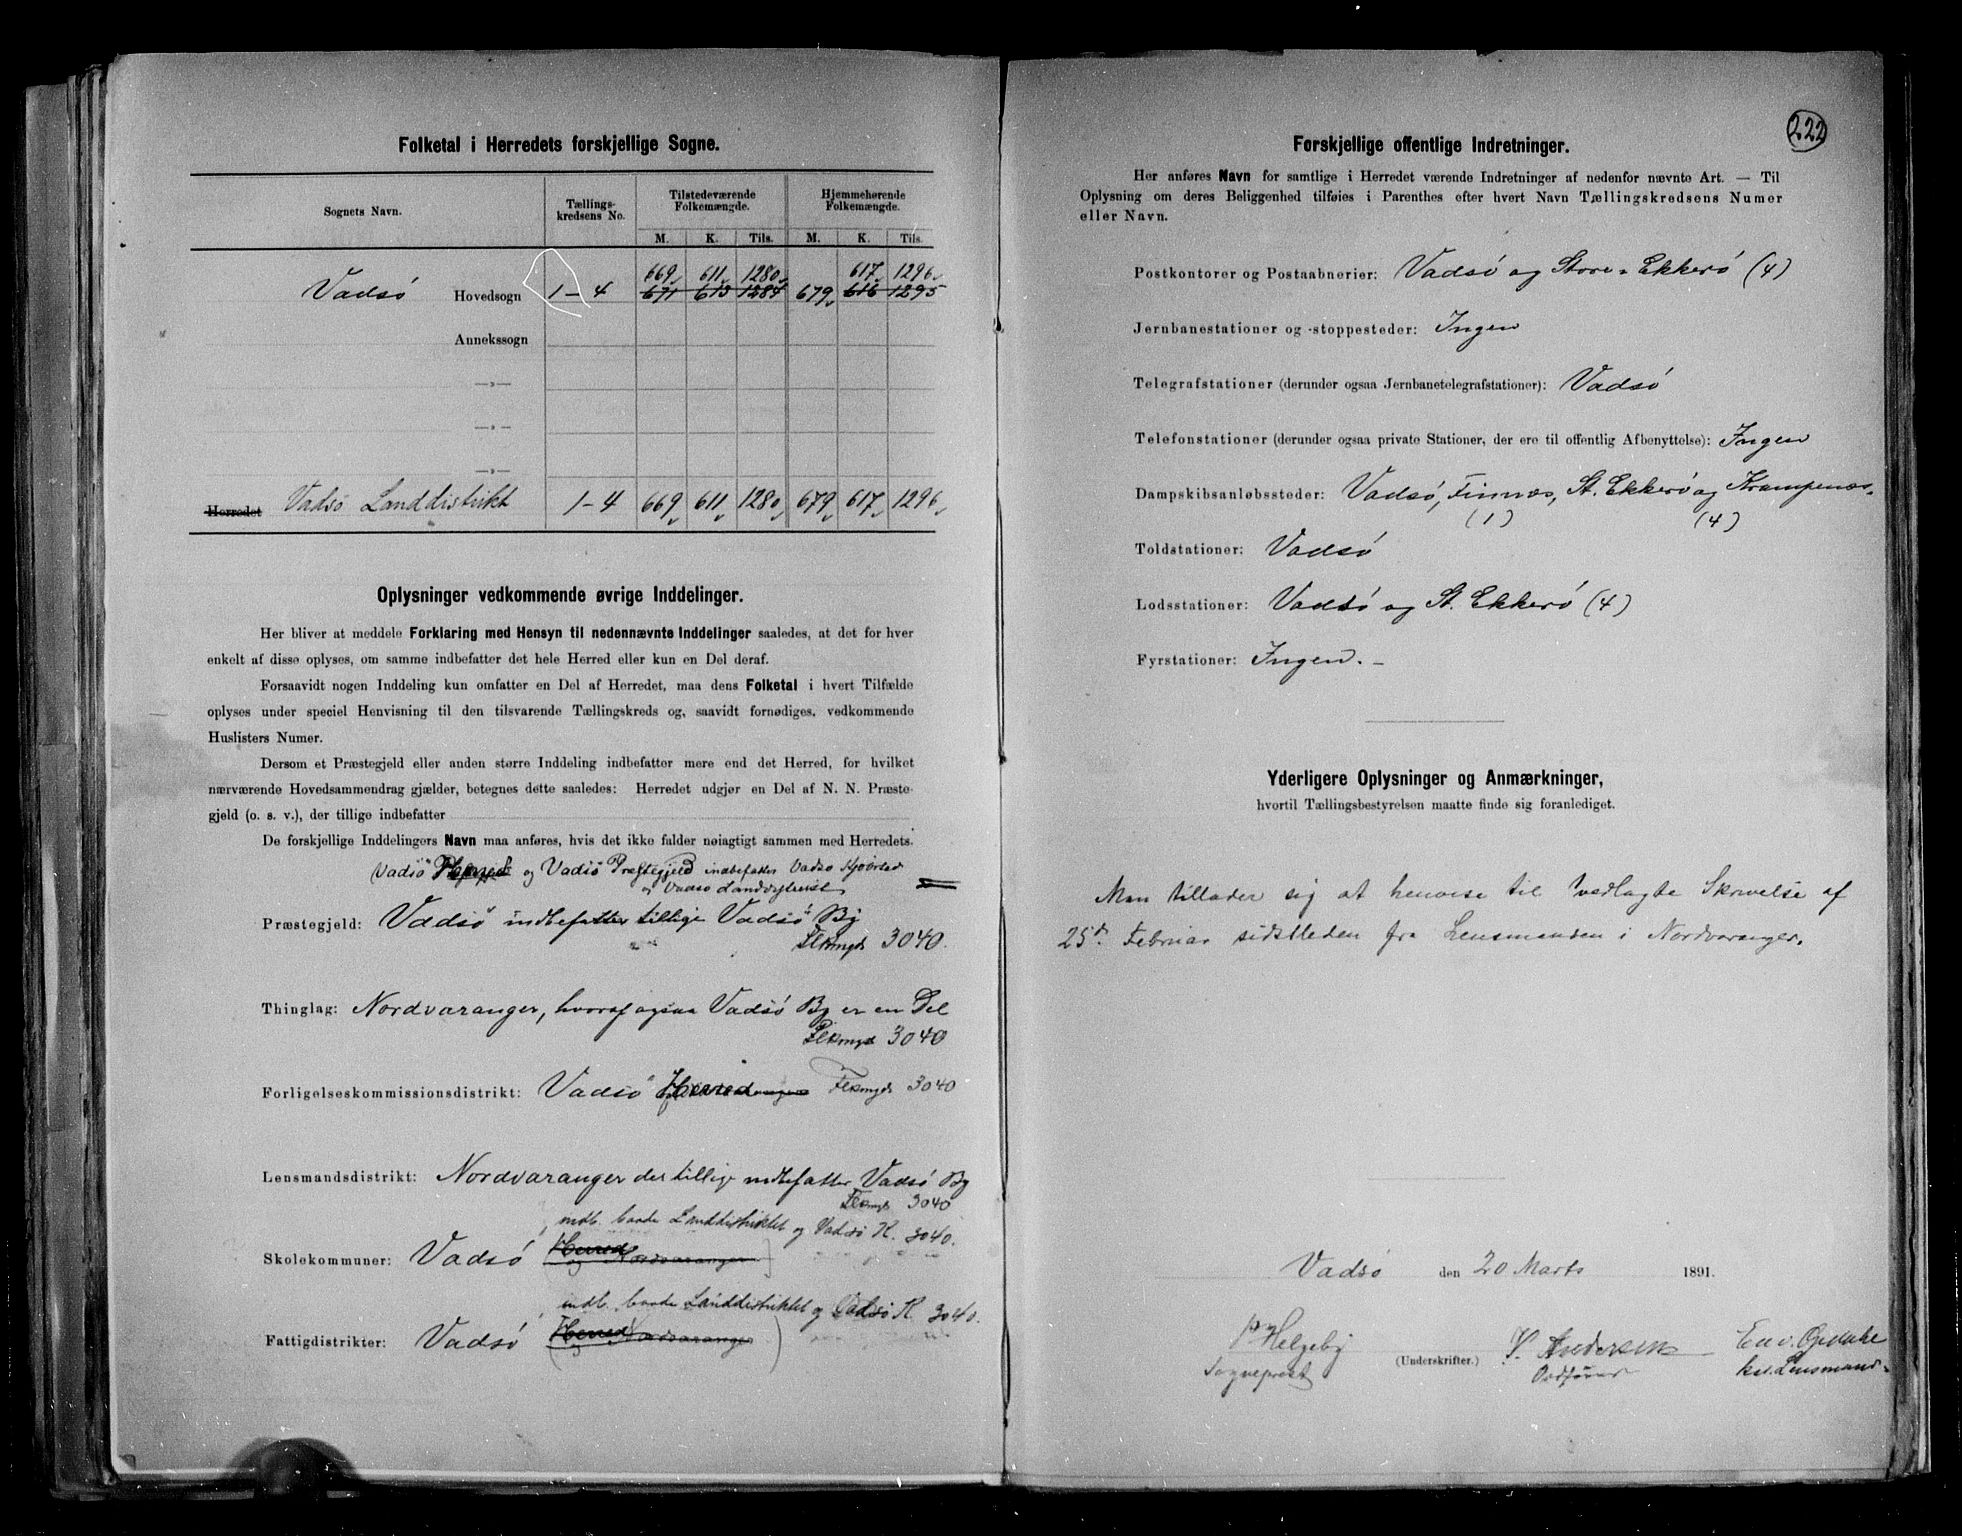 Folketal i Herredets forskjellige Sogne.
Sognets Navn. Tællingskredsens No. Tilstedeværende Folkemængde. Hjemmehørende Folkemængde.
M. K. Tils. M. K. Tils.
669 611 1280 617 1296
Vadsö Hovedsogn 1-4 671 613 1284 679 616 1295
Annekssogn
—„—
—„—
—„—
Herredet Vadsö Landdistrikt 1-4 669 611 1280 679 617 1296
Oplysninger vedkommende øvrige Inddelinger.
Her bliver at meddele Forklaring med Hensyn til nedennævnte Inddelinger saaledes, at det for hver
enkelt af disse oplyses, om samme indbefatter det hele Herred eller kun en Del deraf.
Forsaavidt nogen Inddeling kun omfatter en Del af Herredet, maa dens Folketal i hvert Tilfælde
oplyses under speciel Henvisning til den tilsvarende Tællingskreds og, saavidt fornødiges, vedkommende
Huslisters Numer.
Dersom et Præstegjeld eller anden større Inddeling indbefatter mere end det Herred, for hvilket
nærværende Hovedsammendrag gjælder, betegnes dette saaledes: Herredet udgjør en Del af N. N. Præste-
gjeld (o. s. v.), der tillige indbefatter
De forskjellige Inddelingers Navn maa anføres, hvis det ikke falder nøiagtigt sammen med Herredets.
Vadsö og Vadsö Præstegjeld indbefatter Vadsö Kjøbsted
og Vadsö Landdistrikt
Præstegjeld: Vadsö indbefatter tillige Vadsö By
Flkmgd 3040.
Thinglag: Nordvaranger, hvoraf ogsaa Vadsö By er en Del
Flkmgd 3040
Forligelseskommissionsdistrikt: Vadsö Herred Flkmgd 3040
Lensmandsdistrikt: Nordvaranger der tillige indbefatter Vadsö By
Flkmgd 3040
indb. baade Landdistriktet og Vadsö K. 3040.
Skolekommuner: Vadsö Herred og Nordvaranger
indb. baade Landdistriktet og Vadsö K 3040.
Fattigdistrikter: Vadsö (Herred og Nordvaranger)
222
Forskjellige offentlige Indretninger.
Her anføres Navn for samtlige i Herredet værende Indretninger af nedenfor nævnte Art. — Til
Oplysning om deres Beliggenhed tilføies i Parenthes efter hvert Navn Tællingskredsens Numer
eller Navn.
Postkontorer og Postaabnerier: Vadsö og Store-Ekkerö (4)
Jernbanestationer og -stoppesteder: Ingen
Telegrafstationer (derunder ogsaa Jernbanetelegrafstationer): Vadsö
Telefonstationer (derunder ogsaa private Stationer, der ere til offentlig Afbenyttelse): Ingen
Dampskibsanløbssteder: Vadsö, Finnæs, St. Ekkerö og Krampenæs.
(1) (4)
Toldstationer: Vadsö
Lodsstationer: Vadsö og St. Ekkerö (4)
Fyrstationer: Ingen. –
Yderligere Oplysninger og Anmærkninger,
hvortil Tællingsbestyrelsen maatte finde sig foranlediget.
Man tillader sig at henvise til vedlagte Skrivelse af
25de Februar sidstleden fra Lensmanden i Nordvaranger.
Vadsö den 20 Marts 1891.
Helgeby (Underskrifter.) Andersen Opdahl
Sogneprest Ordfører kst. Lensmand.